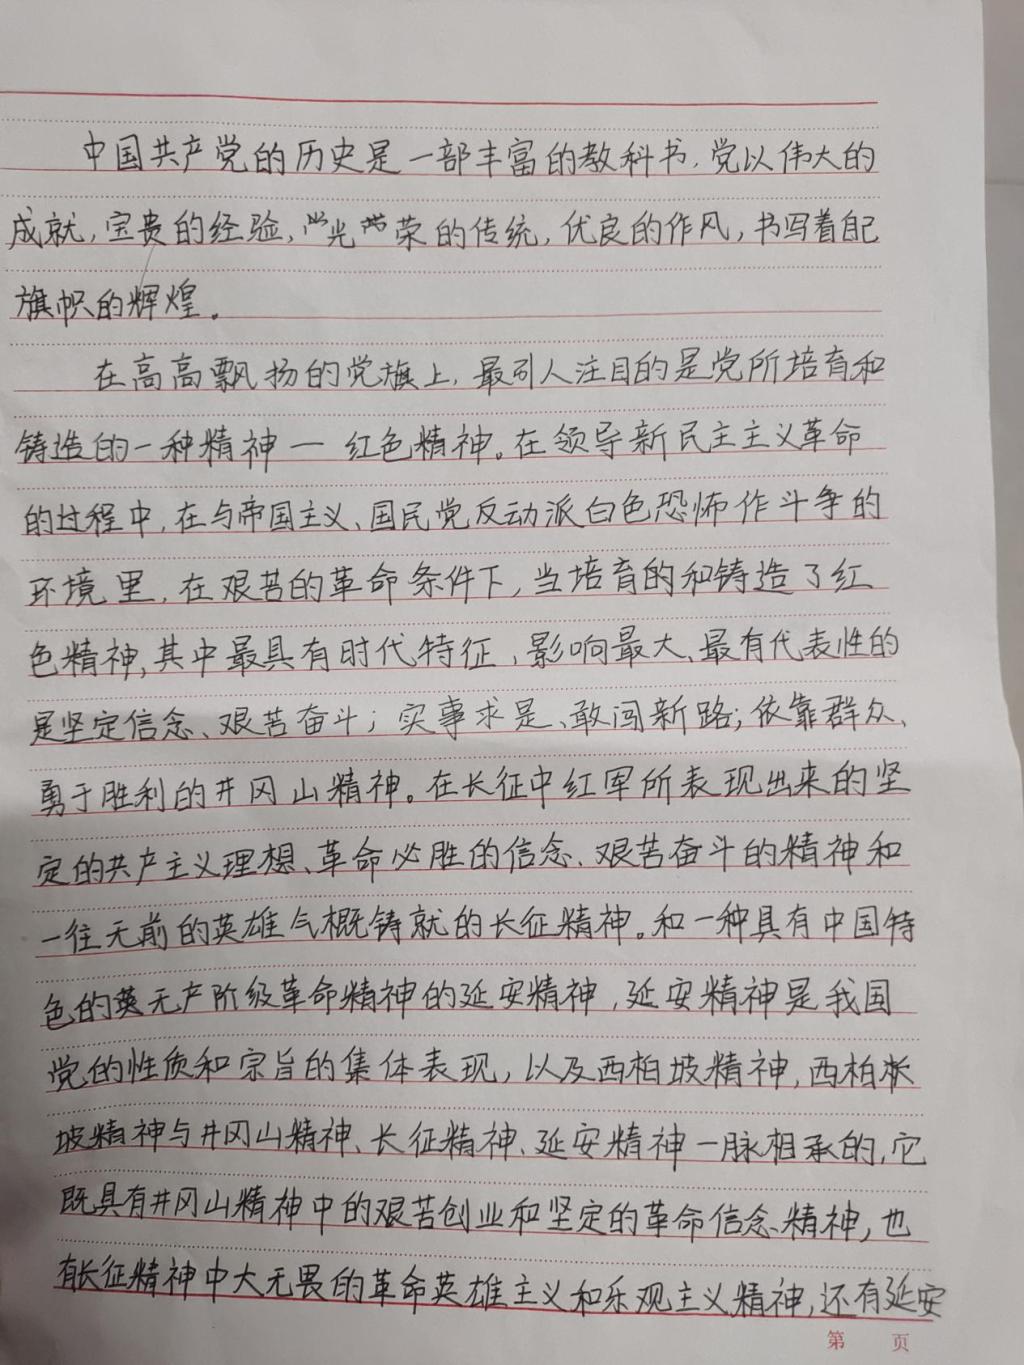 中国共产党的历史是一部丰富的教科书,党以伟大的
成就,宝贵的经验,光荣的传统,优良的作风,书写着自己
旗帜的辉煌。
在高高飘扬的党旗上,最引人注目的是党所培育和
铸造的一种精神一红色精神。在领导新民主主义革命
的过程中,在与帝国主义、国民党反动派白色恐怖作斗争的
环境里,在艰苦的革命条件下,当培育的和铸造了红
色精神,其中最具有时代特征,影响最大、最有代表性的
是坚定信念、艰苦奋斗;实事求是、敢闯新路;依靠群众、
勇于胜利的井冈山精神。在长征中红军所表现出来的坚
定的共产主义理想、革命必胜的信念、艰苦奋斗的精神和
一往无前的英雄气概铸就的长征精神。和一种具有中国特
色的无产阶级革命精神的延安精神,延安精神是我国
党的性质和宗旨的集体表现,以及西柏坡精神,西柏
坡精神与井冈山精神、长征精神、延安精神一脉相承的,它
既具有井冈山精神中的艰苦创业和坚定的革命信念精神,也
有长征精神中大无畏的革命英雄主义和乐观主义精神,还有延安
第 页